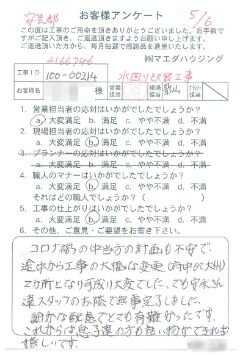 お客様アンケート
5/6
この度は工事のご用命を頂きありがとうございました。お手数ですがご記入頂き、ご返送頂きますようお願い申し上げます。
ご返送頂いた方から、毎月抽選で感謝品を進呈いたします。
㈱マエダハウジング
工事ID
100-00214
水回り改修工事
様
営業担当
現場担当
プラン担当
1. 営業担当者の応対はいかがでしたでしょうか？
a 大変満足 b. 満足 c. やや不満 d. 不満
2. 現場担当者の応対はいかがでしたでしょうか？
a. 大変満足 b 満足 c. やや不満 d. 不満
3. プランナーの応対はいかがでしたでしょうか？
a. 大変満足 b. 満足 c. やや不満 d. 不満
4. 職人のマナーはいかがでしたでしょうか？
a. 大変満足 b 満足 c. やや不満 d. 不満
それはどの職人でしょうか？(
5. 工事の仕上がりはいかがでしたでしょうか？
a. 大変満足 b 満足 c. やや不満 d. 不満
6. その他、ご意見・ご要望をお書き下さい。
コロナ禍の中当方の計画も不安で、
途中から工事の大幅な変更
ヶ所となり可成り大変でした。でも
達スタッフのお陰で無事完了しました。
細かな配慮でとても有難かったです。
これからは息子達の方も
嬉しいです。